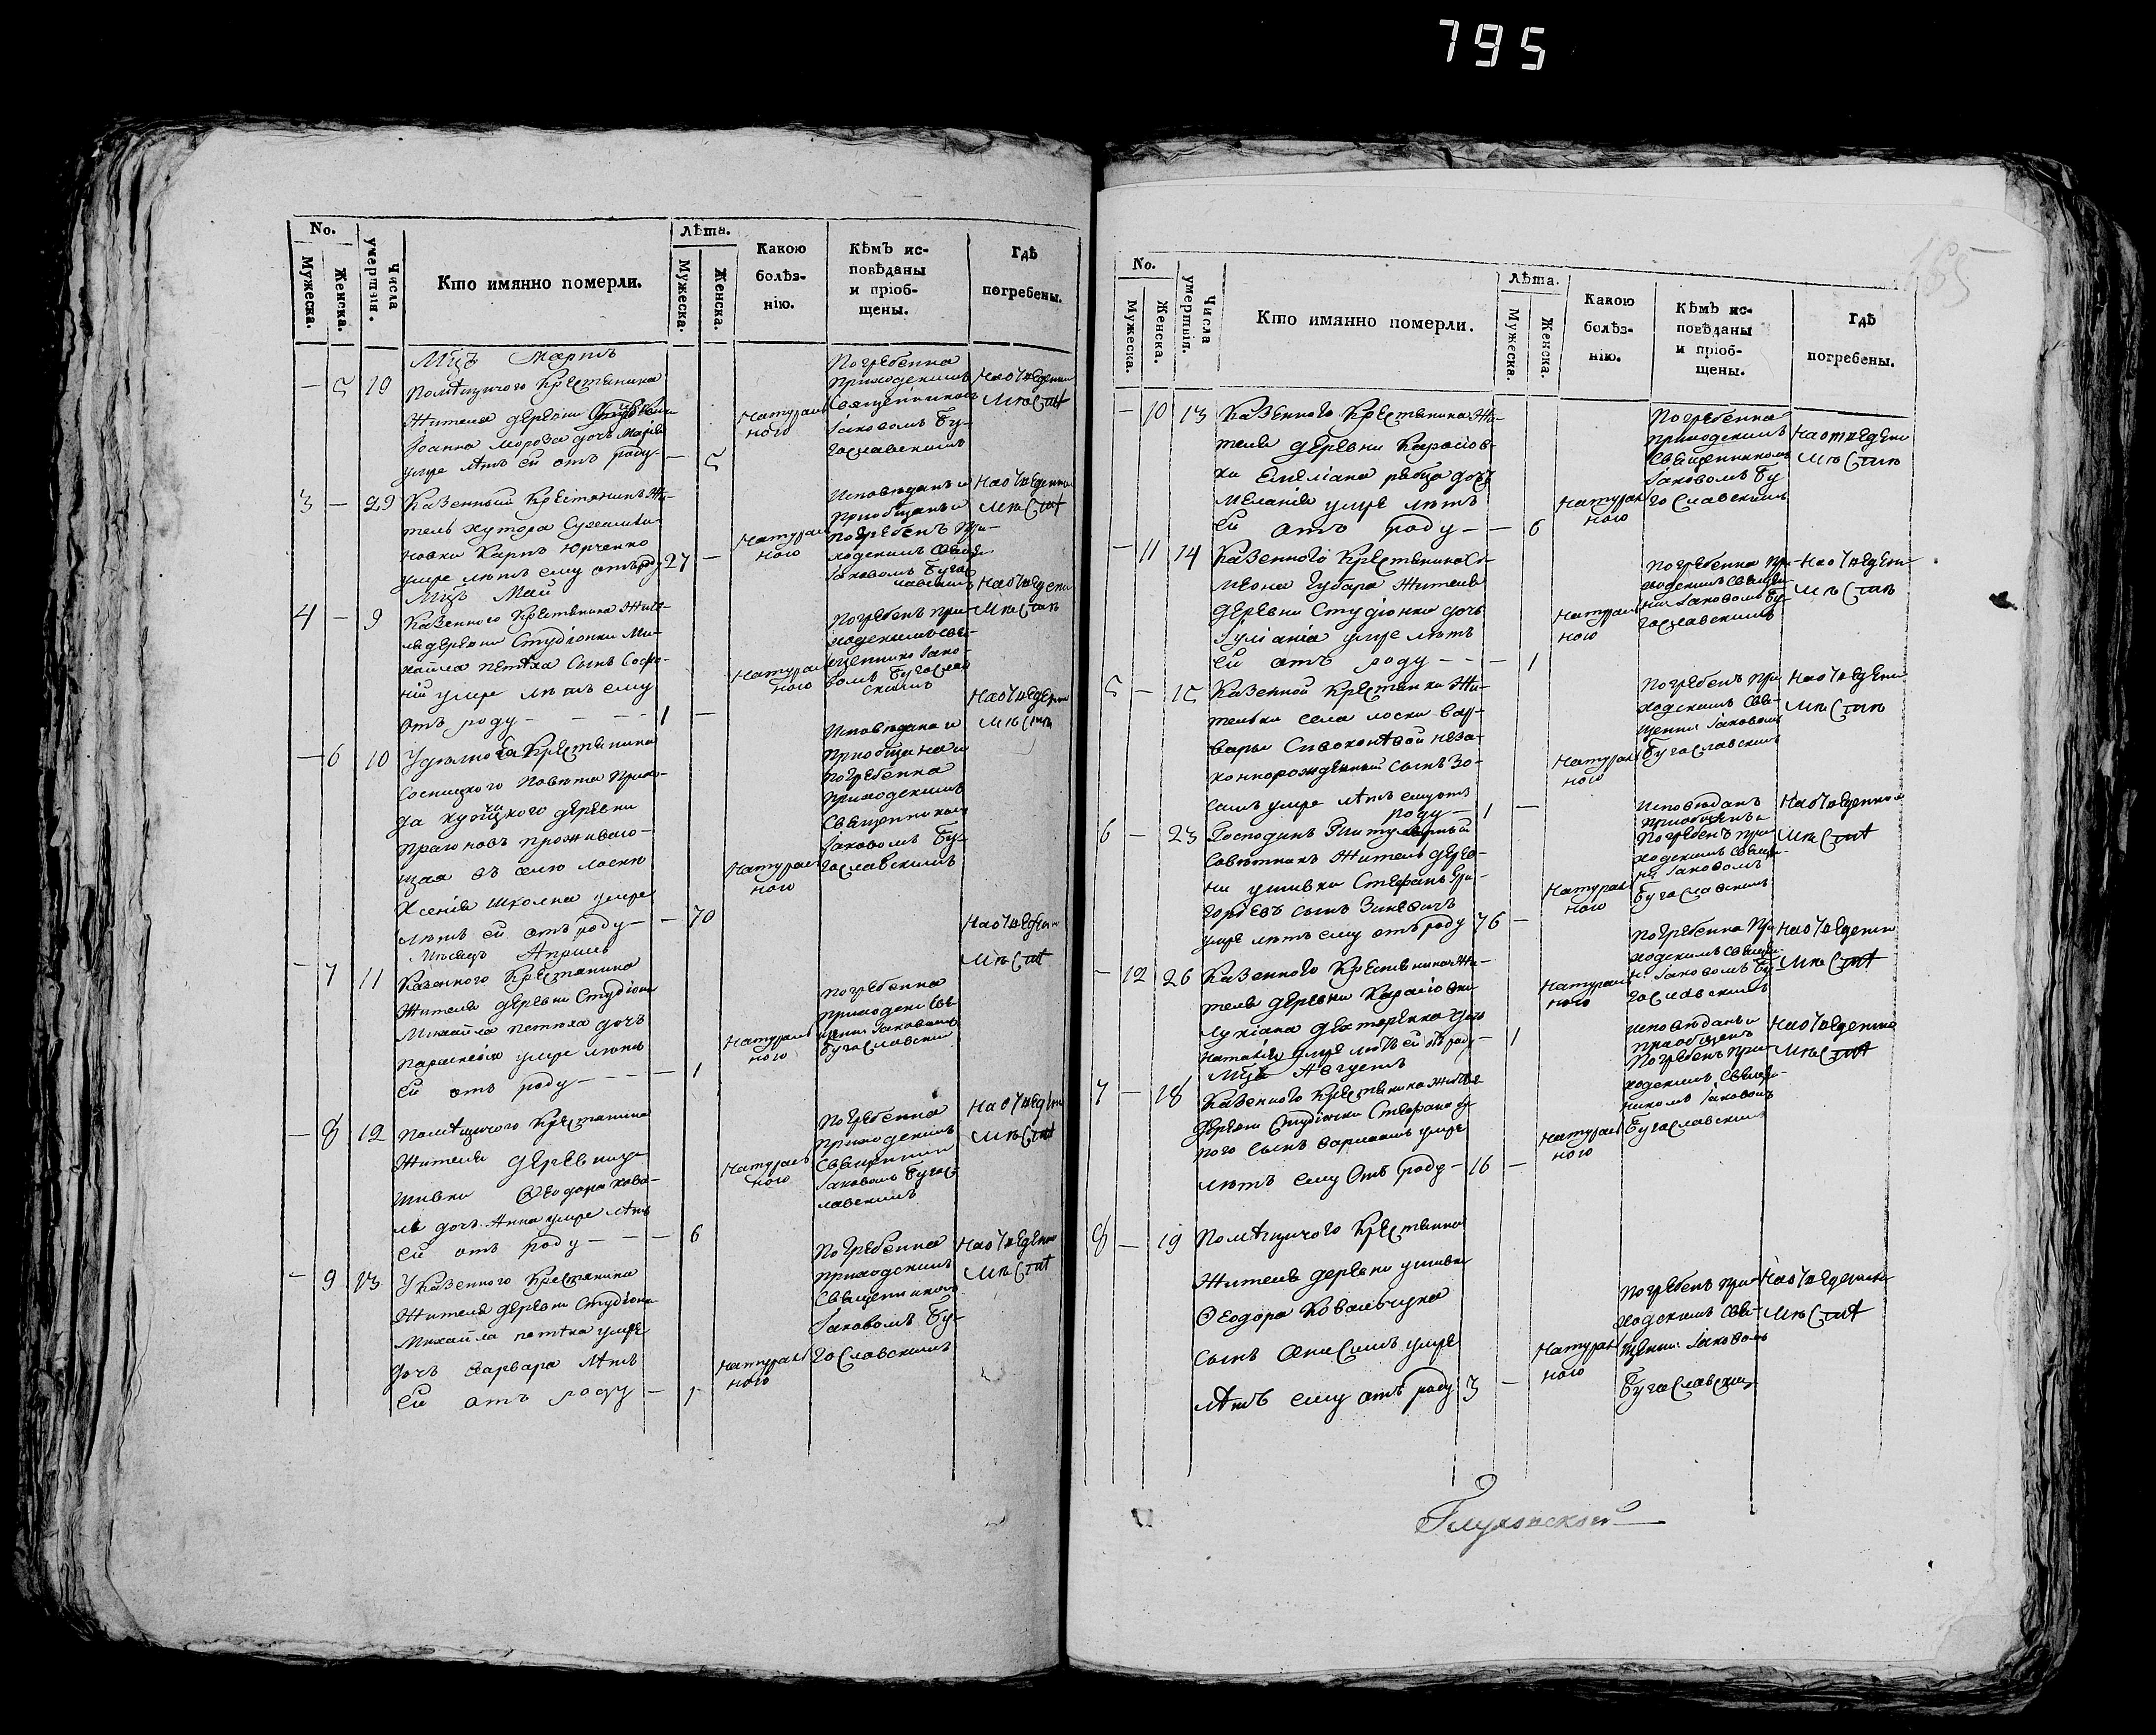 795
185
No.
Мужеска.
Женска.
Числа умертвія.
Кто имянно померли.
Лѣта.
Мужеска.
Женска.
Какою болѣз-
нію.
Кѣмъ ис-
повѣданы
и пріоб-
щены.
Гдѣ
погребены.
Мцъ Мартъ
— 5 19 Помѣщичого Крестянина
Жителя деревни
Іоанна Мороза дочь Марія
умре лѣтъ ей отъ роду — 5
Натурал
ного
Погребенна
приходскимъ
Священникомъ
Іаковомъ Бу-
гославскимъ
На отведенн
мѣстѣ
3 — 29 Казенный Крестянинъ Жи-
тель хутора Сухали
новки Карпъ Юрченко
умре лѣтъ ему отъ роду 27 —
Натурал
ного
Исповѣданъ и
приобщенъ и
погребенъ при-
ходскимъ Свящ
Іаковомъ Буго
славскимъ
На отведенно
мѣстѣ
Мцъ Май
4 — 9 Казенного Крестянина Жите-
ля деревни Студіонки Ми-
хайла Петѣха Сынъ Софо-
ній умре лѣтъ ему
отъ роду - - - - 1 —
Натурал
ного
Погребенъ при-
ходскимъ свя-
щеннико Іако-
вомъ Бугослав
скимъ
На отведени
мѣстѣ
— 6 10 Удѣлного Крестянина
Сосницкого Повѣта
проживаю-
щая въ селѣ Лоски
Ксенія Школна умре
лѣтъ ей отъ роду — — 70
Натурал
ного
Исповѣдана и
приобщена и
погребенна
приходскимъ
Священникомъ
Іаковомъ Бу-
гославскимъ
На отведени
мѣстѣ
Мѣсяцъ Априль
— 7 11 Казенного Крестянина
Жителя деревни Студіонки
Михайла Петѣха дочь
Параскевія умре лѣтъ
ей отъ роду - - - — 1
Натурал
ного
Погребенна
приходски Свя
щенни Іаковомъ
Бугославски
На отведени
мѣстѣ
— 8 12 Помѣщичого Крестянина
Жителя деревни У-
шивки Феодора Кова-
ля дочь Анна умре лѣтъ
ей отъ роду - — — 6
Натурал
ного
Погребенна
приходскимъ
Священни
Іаковомъ Бугос-
лавскимъ
На отведени
мѣстѣ
— 9 23 Казенного Крестянина
Жителя деревни Студіонки
Михайла Петѣха умре
дочь Варвара лѣтъ
ей отъ роду — 1
Натурал
ного
Погребенна
приходскимъ
Священником
Іаковомъ Бу-
гославскимъ
На отведено
мѣстѣ
No.
Мужеска.
Женска.
Числа умертвія.
Кто имянно померли.
Лѣта.
Мужеска.
Женска.
Какою
болѣз-
нію.
Кѣмъ ис-
повѣданы
и пріоб-
щены.
Гдѣ
погребены.
— 10 13 Казенного Крестянина Жи-
теля деревни Карасіов-
ки Емеліана Рябца дочь
Меланія умре лѣтъ
ей отъ роду — — 6
Натурал
ного
Погребенна
приходскимъ
Священникомъ
Іаковомъ Бу
гославскимъ
На отведени
мѣстѣ
— 11 14 Казенного Крестянина Си-
меона Губара Жителя
деревни Студіонки дочь
Іуліанія умре лѣтъ
ей отъ роду - - — 1
Натурал
ного
Погребенна при-
ходскимъ Священ-
ни Іаковомъ Бу-
гославскимъ
На отведени
мѣстѣ
5 — 15 Казенной Крестянки Жи-
телки села Лоски Вар-
вары Сивоконѣвой неза-
коннорожденный Сынъ Зо-
симъ умре лѣтъ ему отъ
роду — 1 —
Натурал
ного
Погребенъ при
ходскимъ Свя-
щенни Іаковом
Бугославскимъ
На отведени
мѣстѣ
6 — 23 Господинъ Титулярный
Совѣтникъ Житель дерев-
ни Ушивки Стефанъ Гри-
горіевъ Сынъ Зиневичъ
умре лѣтъ ему отъ роду 76 —
Натурал
ного
Исповѣданъ
приобщенъ и
погребенъ при
ходскимъ Священ-
ни Іаковомъ
Бугославскимъ
На отведенно
мѣстѣ
— 12 26 Казенного Крестянина Жи-
теля деревни Карасіовки
Лукіана Дехтяренка дочь
Наталія умре лѣтъ ей отъ роду — 1
Натурал
ного
Погребенна При
ходскимъ Священ-
н Іаковомъ Бу-
гославскимъ
На отведени
мѣстѣ
Мцъ Августъ
7 — 18 Казенного Крестянина Жителя
деревни Студіонки Стефана
Сынъ Варлаамъ умре
лѣтъ ему отъ роду — 16 —
Натурал
ного
Исповѣданъ и
приобщенъ
погребенъ при-
ходскимъ Священ-
никомъ Іаковомъ
Бугославским
На отведенно
мѣстѣ
8 — 19 Помѣщичого Крестянина
Жителя деревни Ушивки
Феодора Ковалчука
Сынъ Анисимъ умре
лѣтъ ему отъ роду 3 —
Натурал
ного
Погребенъ при-
ходскимъ Свя-
щенни Іаковомъ
Бугославским
На отведенно
мѣстѣ